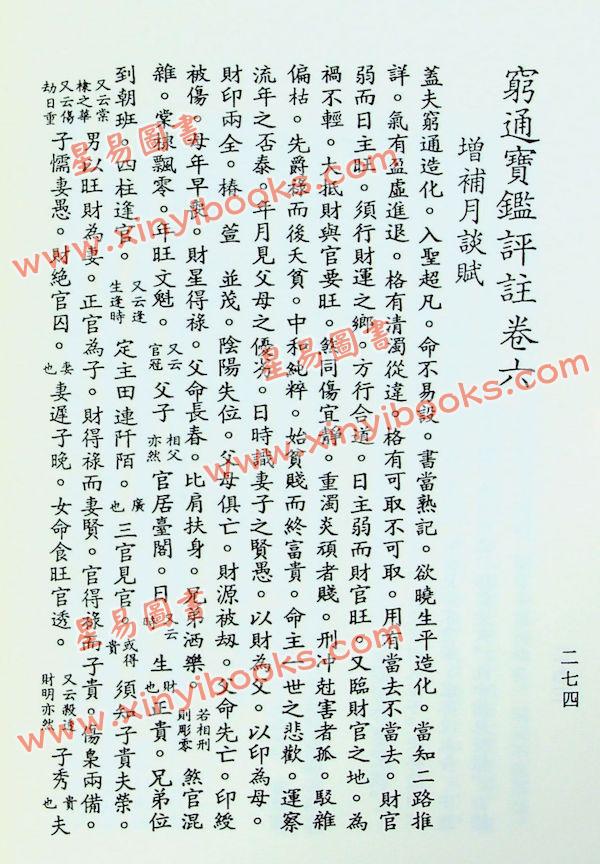 窮通寶鑑評註卷六
增補月談賦
蓋夫窮通造化。入聖超凡。命不易設。書當熟記。欲曉生平造化。當知二路推
詳。氣有盈虛進退。格有清濁從違。格有可取不可取。用有當去不當去。財官
弱而日主旺。須行財運之鄉。方行合道。日主弱而財官旺。又臨財官之地。為
禍不輕。大抵財與官要旺。煞同傷宜靜。重濁炎頑者賤。刑冲尅害者孤。駁雜
偏枯。先爵祿而後夭貧。中和純粹。始貧賤而終富貴。命主一世之悲歡。運察
流年之否泰。年月見父母之優劣。日時識妻子之賢愚。以財為父。以印為母。
財印兩全。椿萱並茂。陰陽失位。父母俱亡。財源被刼。父命先亡。印綬
被傷。母年早喪。財星得祿。父命長春。比肩扶身。兄弟洒樂。若相刑則彫零 煞官混
雜。棠棣飄零。年旺文魁。又云官冠 父子相父亦然 官居臺閣。日又云時 生財也 正貴。兄弟位
到朝班。四柱逢官。又云逢生逢時 定主田連阡陌。廣也 三官見官。或得貴 須知子貴夫榮。
又云棠棣之華 男以旺財為妻。正官為子。財得祿而妻賢。官得祿而子貴。傷梟兩備。
又云傷劫日重 子懦妻愚。財絕官囚。妻也 妻遲子晚。女命食旺官透。又云殺逢財明亦然 子秀貴也 夫
二七四
星易圖書
www.xinyibooks.com
星易圖書
www.xinyibooks.com
星易圖書
www.xinyibooks.com
星易圖書
www.xinyibooks.com